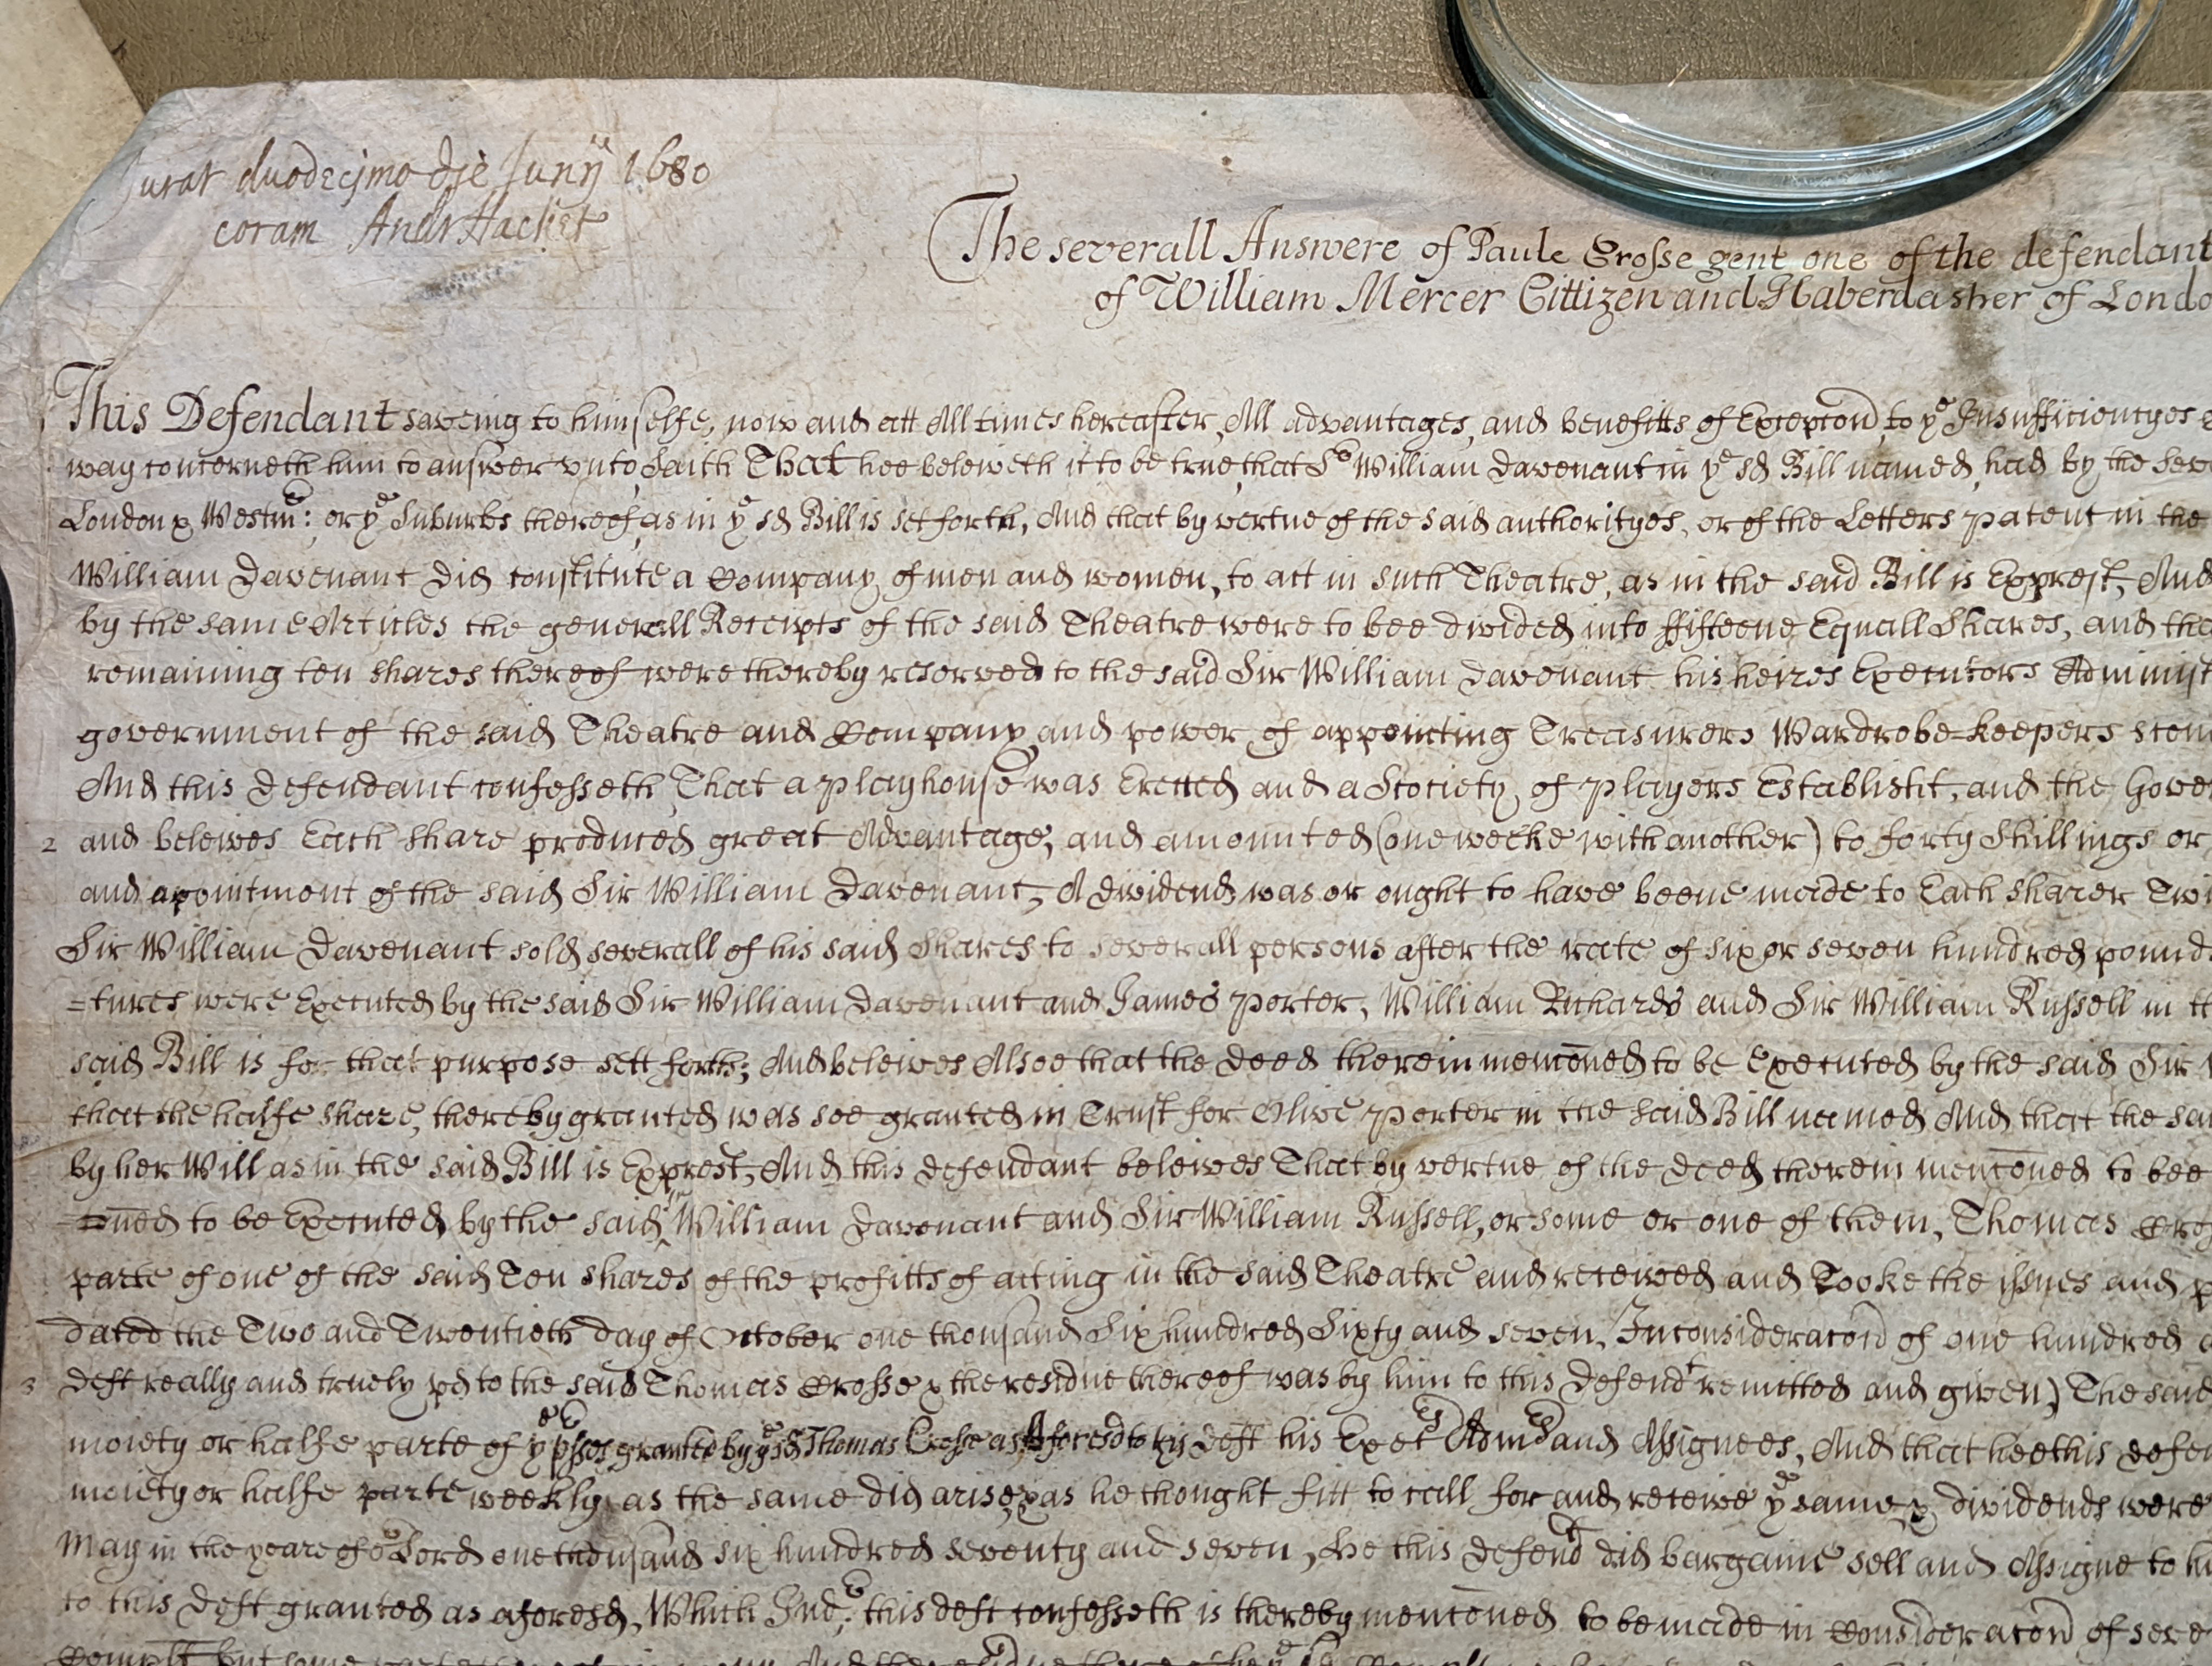 Jurat duodecjmo die Junij 1680
coram Andr Hacket
The severall Answere of Paule Crosse gent one of the defendant
of William Mercer Cittizen and Haberdasher of Londo
1 This Defendant saveing to himselfe, now and att All times hereafter, All advantages, and benefitts of Excepcon, to ye Insufficientyes
way concerneth him to answer vnto, saith That hee beleiveth it to be true, that Sr William Davenant in ye sd Bill named, had by the sev
London & Westmr: or ye Suburbs thereof, as in ye sd Bill is set forth, And that by vertue of the said authorityes, or of the Letters patent in the
William Davenant did constitute a Company of men and women, to act in such Theatre, as in the said Bill is Exprest, And
by the same Articles the generall Receipts of the said Theatre were to bee divided into ffifteene Equall Shares, and the
remaining ten shares thereof were thereby reserved to the said Sir William Davenant his heires Executors Administ
government of the said Theatre and Company and power of appointing Treasurers Wardrobe-keepers
And this defendant confesseth That a playhouse was Erected and a Society of players Establisht, and the Gove
2 and beleives Each share produced great Advantage, and amounted (one weeke with another) to forty Shillings or
and apointment of the said Sir William Davenant, A dividend was or ought to have beene made to Each sharer Twi
Sir William Davenant sold severall of his said Shares to severall persons after the rate of six or seven hundred pound
=tures were Executed by the said Sir William Davenant and James Porter, William Richards and Sir William Russell in
said Bill is for that purpose sett forth; And beleives Alsoe that the deed therein mencōned to be Executed by the said Sir
that the halfe share, thereby granted was soe granted in Trust for Olive Porter in the said Bill named And that the sa
by her Will as in the said Bill is Exprest, And this defendant beleives That by vertue of the deed therein mencōned to bee
=cōned to be Executed by the said Sr William Davenant and Sir William Russell, or some or one of them, Thomas Cros
parte of one of the said Ten shares of the profitts of acting in the said Theatre and received and Tooke the issues and p
dated the Two and Twentieth day of October one thousand Six hundred Sixty and seven, In consideracōn of one hundred
3 deft really and truely pd to the said Thomas Crosse & the residue thereof was by him to this defendt remitted and given) The said
moiety or halfe parte of ye pmsses granted by ye sd Thomas Crosse as Aforesd to this deft his Exec Admrs and Assignees, And that hee this defen
moiety or halfe parte weekly as the same did arise, & as he thought fitt to call for and receive ye same, & dividends were
May in the yeare of or Lord one thousand six hundred seventy and seven, He this defendt did bargaine sell and Assigne to
to this deft granted as aforesd, Which Indre: this deft confesseth is thereby mencōned to be made in Consideracōn of seve